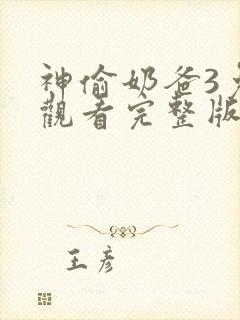 神偷奶爸3
觀看完整版
王彦